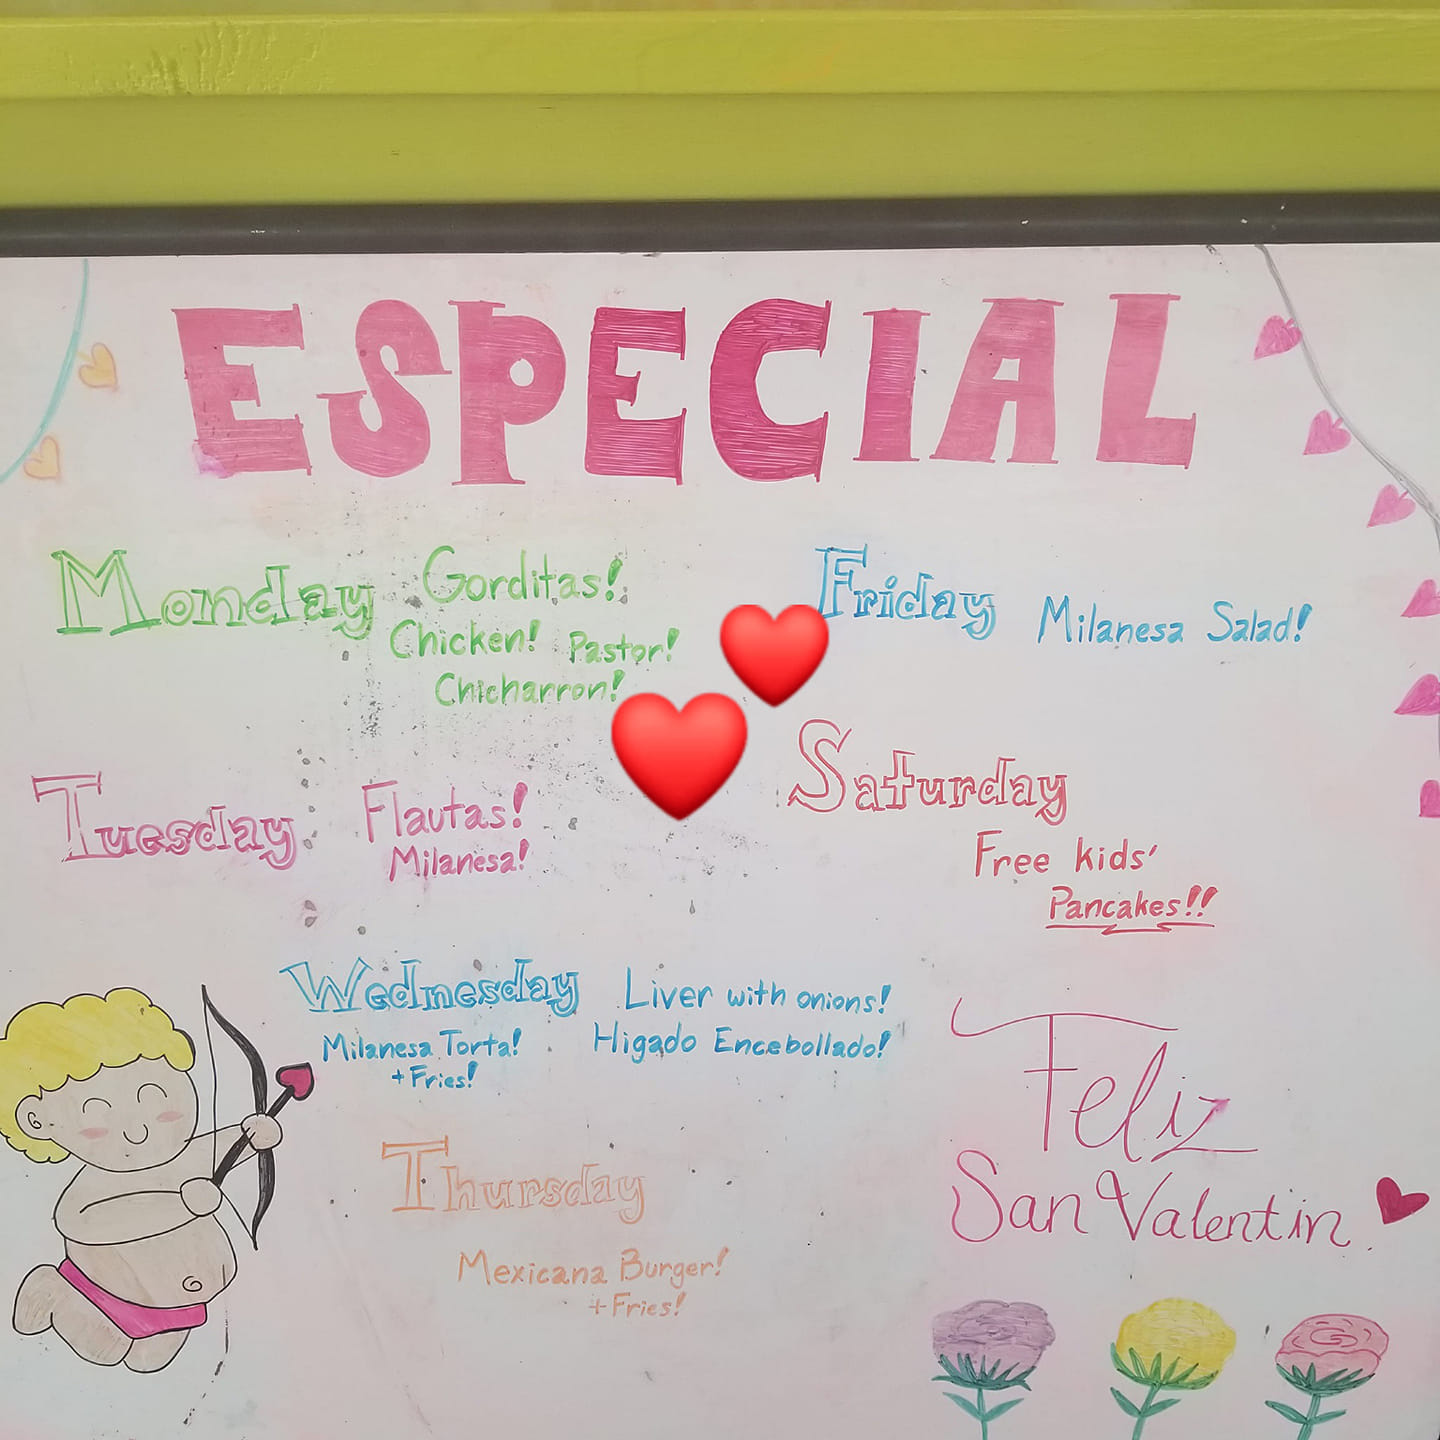 ESPECIAL
Monday
Gorditas!
Chicken! Pastor!
Chicharron!
Tuesday
Flautas!
Milanesa!
Wednesday
Liver with onions!
Higado Encebollado!
Milanesa Torta!
+Fries!
Thursday
Mexicana Burger!
+Fries!
Friday
Milanesa Salad!
Saturday
Free kids'
Pancakes!!
Feliz
San Valentin